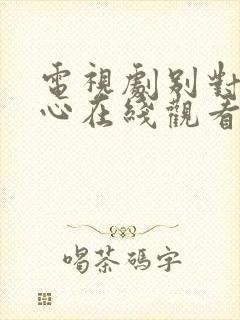 電視劇别對
心在綫觀看
喝茶碼字